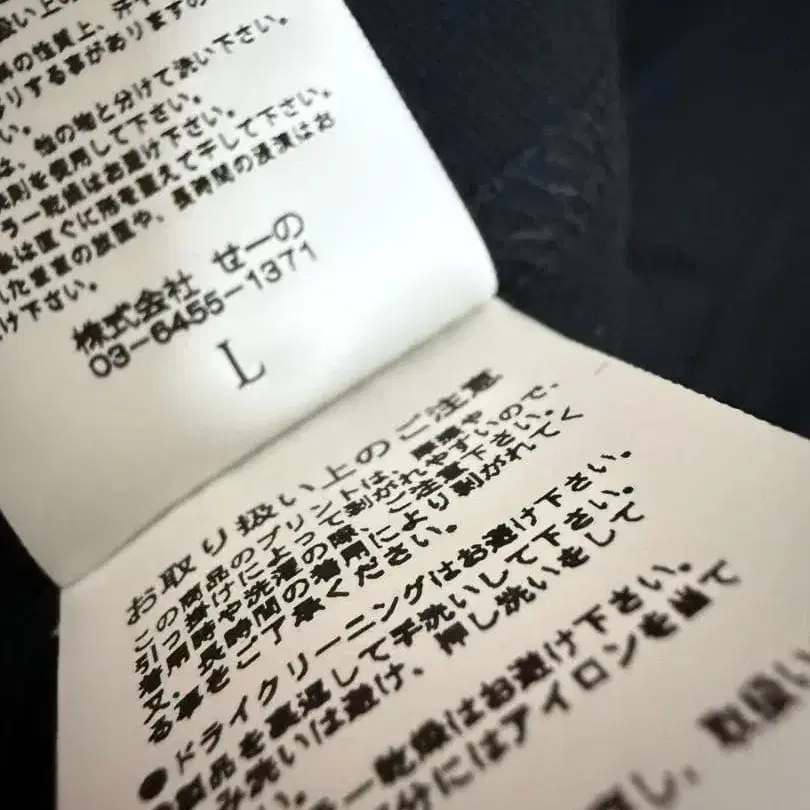 扱い上の
の性質上、汗や
移りする事がありますの
い。
は、他の物と分けて洗い下さい。
洗剤を使用して下さい。
ラー乾燥はお避け下さい。
後は直ぐに形を整えて干して下さい。
れた状態の放置や、長時間の浸漬はお
け下さい。
株式会社 せーの
03-6455-1371
L
お取り扱い上のご注意
この商品のプリントは、摩擦や
引っ掛けによって剥がれやすいので、
着用時や洗濯の際、ご注意下さい。
又、長時間の着用により剥がれてく
る事をご了承ください。
●ドライクリーニングはお避け下さい。
製品を裏返して手洗いして下さい。
み洗いは避け、押し洗いをして
い。
ラー乾燥はお避け下さい。
部分にはアイロンを当て
し、取扱い